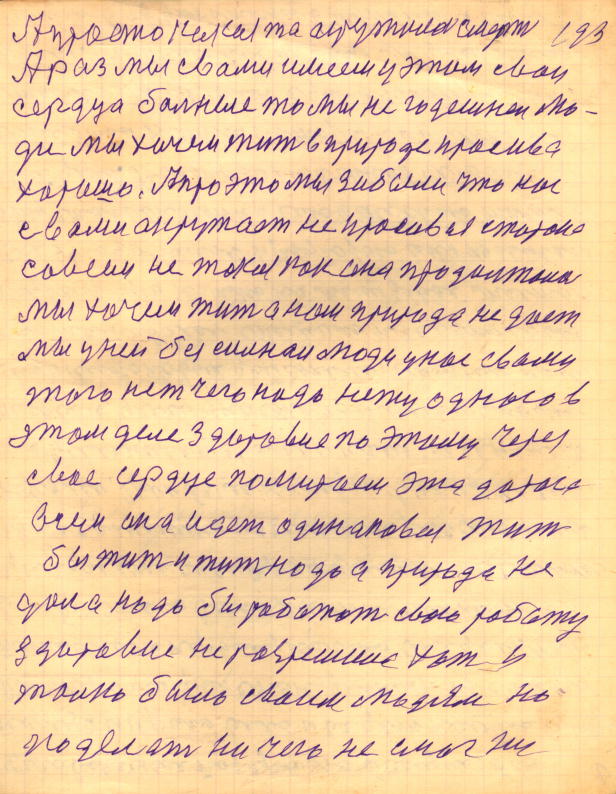 А просто какая та окружила смерт 193
А раз мы свами имееем у этом свои
сердца болные то мы не годешнеи лю-
ди мы хочем жит в природе красива
хорошо. А про это мы забыли что нас
свами окружает не красовая сторона
совсем не такая как она продолжала
мы хочем жит а нам природа не дает
мы у ней бессилнаи люди у нас свами
того нет чего надо нету одного в
этом деле здоровие по этому через
свое сердце помираем эта дорога
всем она идет одинаковая жит
бы жит и жит надо а природа не
дала надо бы работат свою работу
здоровие не разрешило хот и
жално было своим людям но
поделат ни чего не смогли